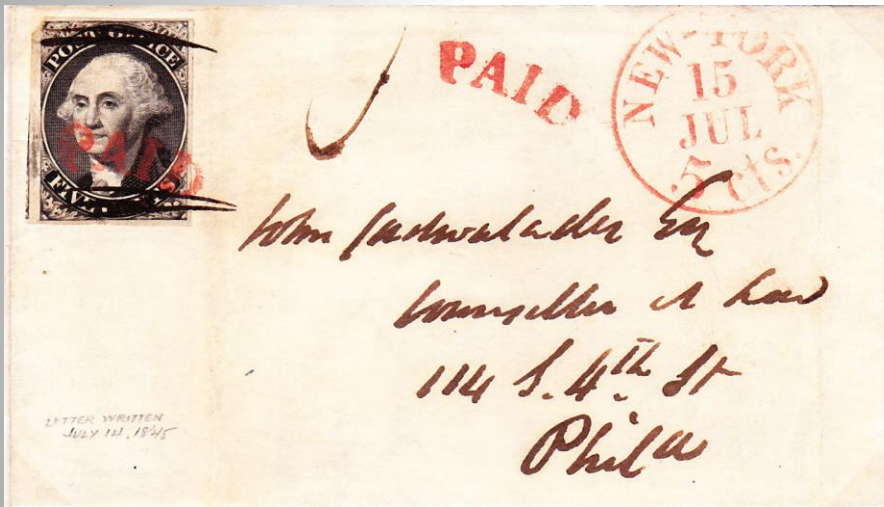 POST OFFICE
PAID
FIVE CENTS
PAID
NEW-YORK
15
JUL
5 cts.
John Cadwalader Esq
Counseller at Law
114 S. 4th St
Phila
LETTER WRITTEN
JULY 14, 1845